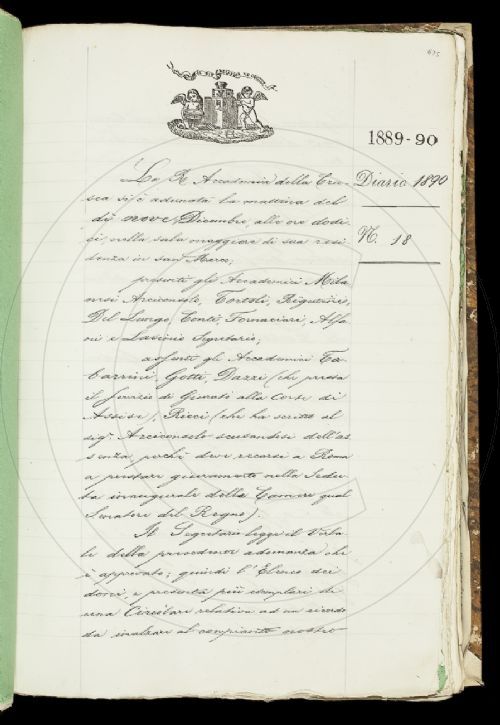 475
1889-90
Diario 1890
N. 18
La R. Accademia della Cru-
sca si è adunata la mattina del
dì nove Dicembre, alle ore dodi-
ci, nella sala maggiore di sua resi-
denza in San Marco,
presenti gli Accademici Mila-
nesi Arciconsolo, Tortoli, Rigutini,
Del Lungo, Conti, Fornaciari, Alfa-
ni e Lasinio Segretario;
assenti gli Accademici Ta-
barrini, Gotti, Dazzi (che presta
il servizio di Giurato alla Corte di
Assise), Ricci (che ha scritto al
sig.r Arciconsolo scusandosi dell'as-
senza, perchè deve recarsi a Roma
a prestare giuramento nella Sedu-
ta inaugurale della Camera qual
Senatore del Regno).
Il Segretario legge il Verba-
le della precedente adunanza che
è approvato; quindi l'Elenco dei
doni, e presenta più esemplari di
una Circolare relativa ad un ricordo
da innalzare al compianto nostro